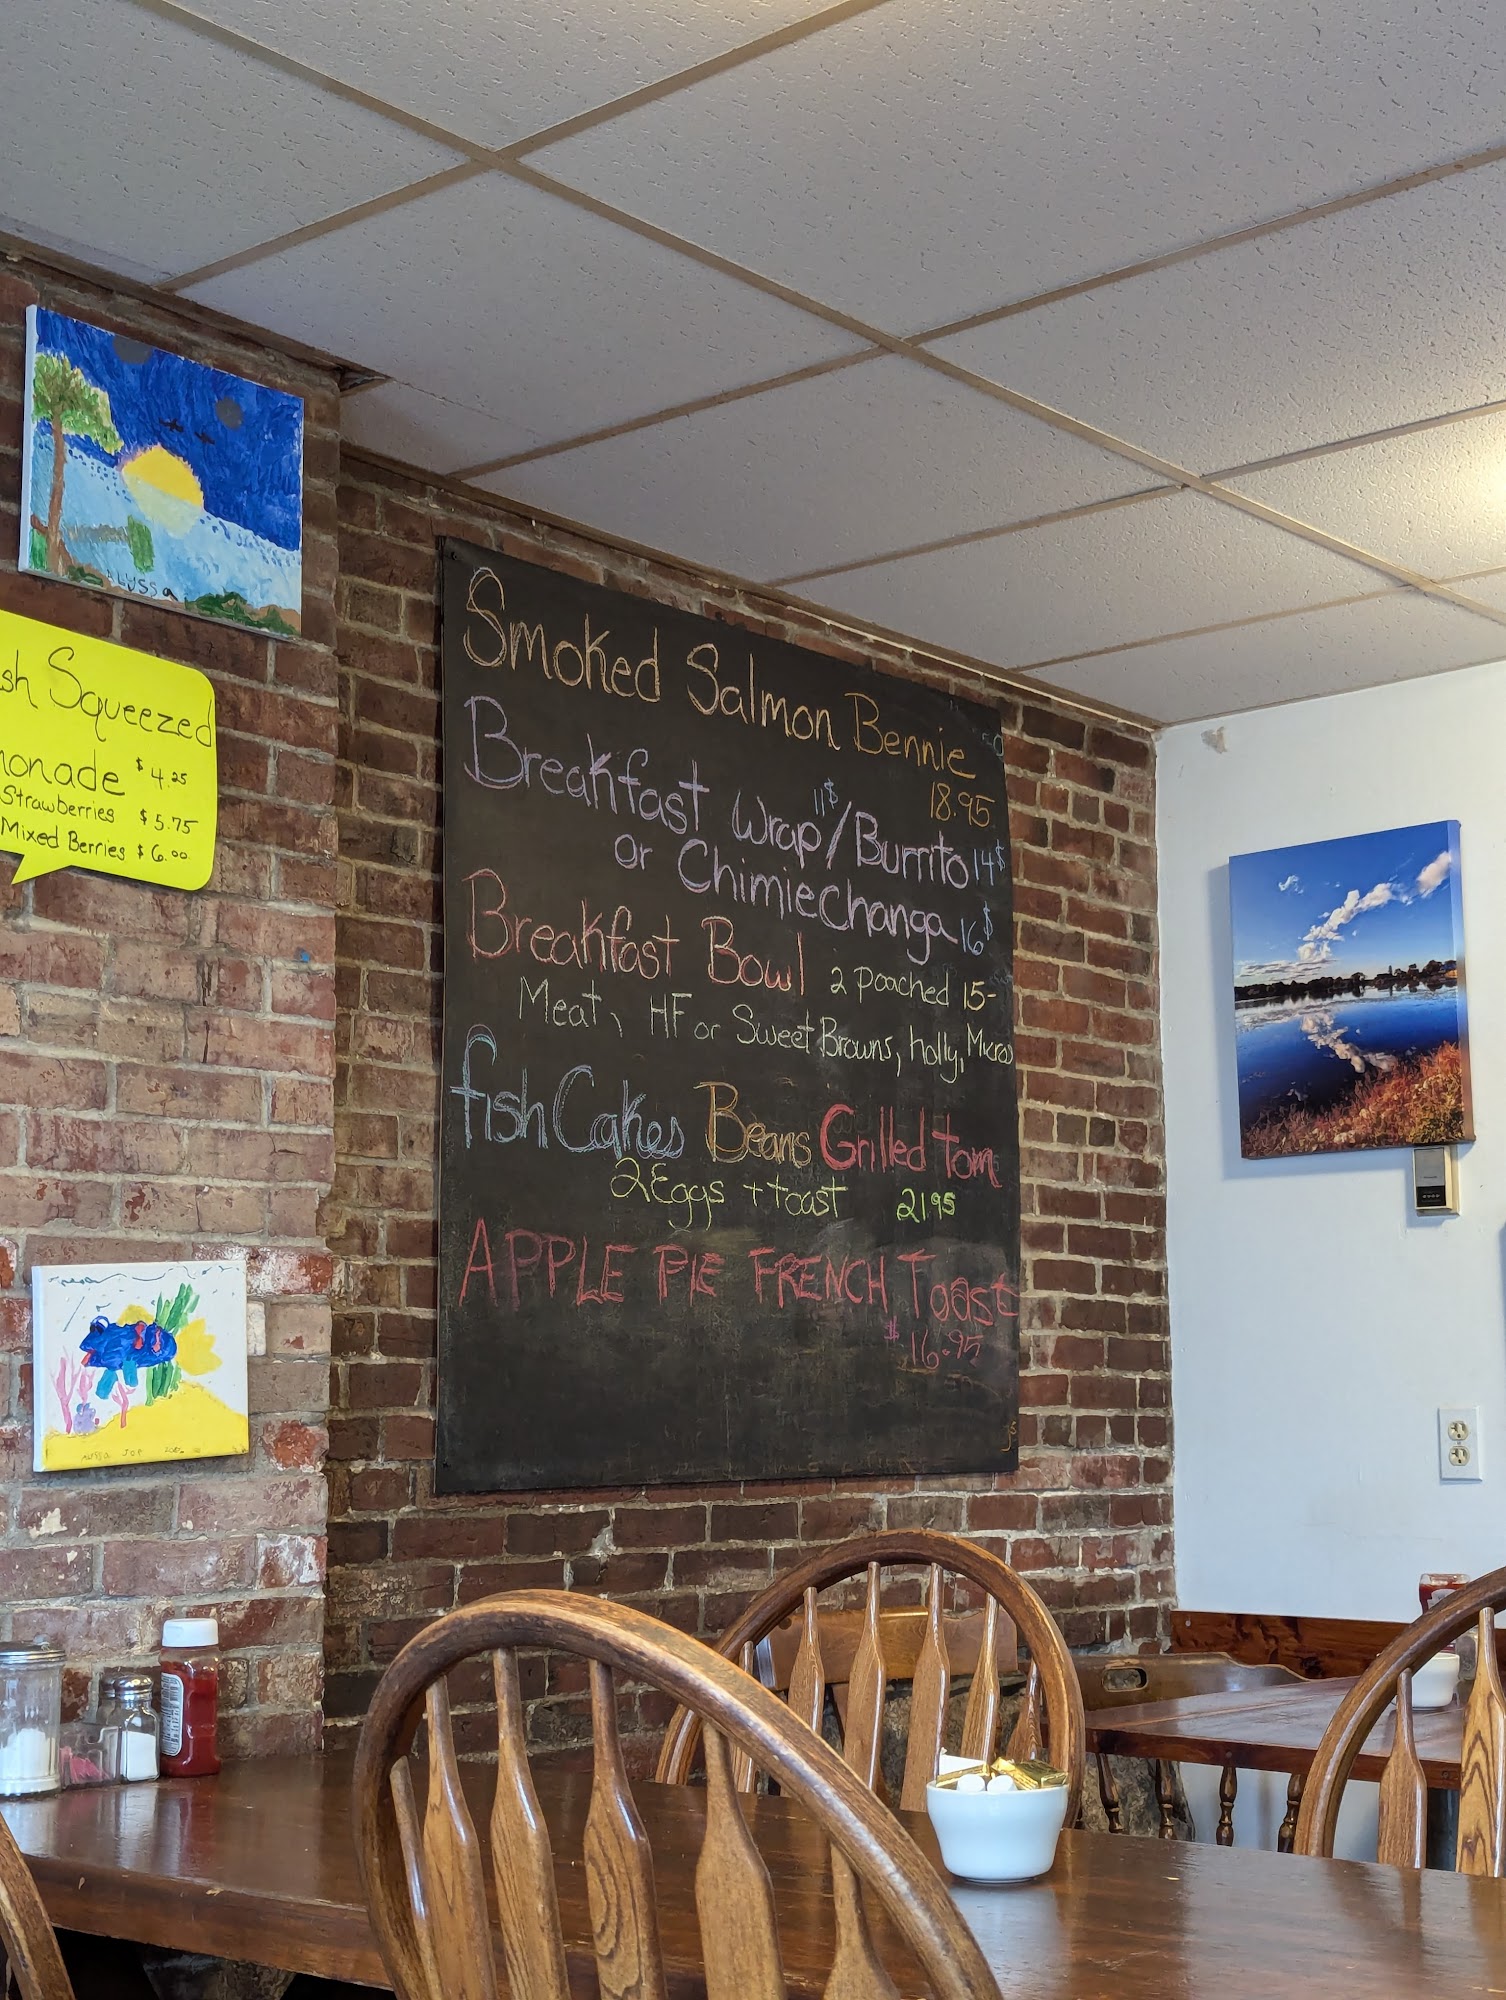 ALYSSa
sh Squeezed
monade $4.25
Strawberries $5.75
Mixed Berries $6.00
Smoked Salmon Bennie
18.95
Breakfast Wrap 11$/Burrito 14$
or Chimiechanga 16$
Breakfast Bowl 2 poached 15-
Meat, HF or Sweet Browns, holly, Micros
fish Cakes Beans Grilled tom
2 Eggs + toast 2195
APPLE PIE FRENCH Toast
$16.95